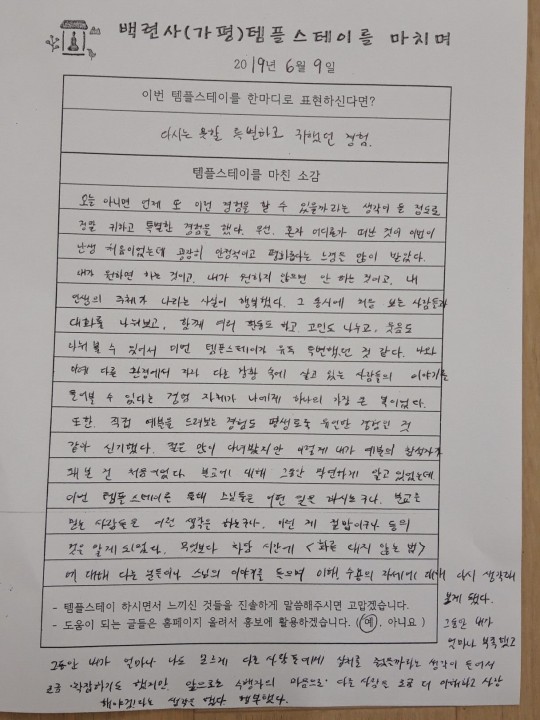 백련사(가평)템플스테이를 마치며
2019년 6월 9일
이번 템플스테이를 한마디로 표현하신다면?
다시는 못할 특별하고 귀했던 경험.
템플스테이를 마친 소감
오늘 아니면 언제 또 이런 경험을 할 수 있을까라는 생각이 들 정도로
정말 귀하고 특별한 경험을 했다. 우선, 혼자 어디론가 떠난 것이 이번이
난생 처음이었는데 굉장히 안정적이고 평화롭다는 느낌을 많이 받았다.
내가 원하면 하는 것이고, 내가 원하지 않으면 안 하는 것이고, 내
인생의 주체가 나라는 사실이 행복했다. 그 동시에 처음 보는 사람들과
대화를 나눠보고, 함께 여러 활동도 하고 고민도 나누고, 웃음도
나눠볼 수 있어서 이번 템플스테이가 유독 특별했던 것 같다. 나와
다른 환경에서 자라 다른 상황 속에 살고 있는 사람들의 이야기를
들어볼 수 있다는 경험 자체가 나에게 하나의 가장 큰 복이었다.
또한, 직접 예불을 드려보는 경험도 평생토록 동안만 경험된 것
같아 신기했다. 절은 많이 다녀봤지만 이렇게 내가 예불의 참석자가
돼 본 건 처음이었다. 불교에 대해 그동안 막연하게 알고 있었는데
이번 템플스테이를 통해 스님들은 어떤 일을 하시는구나, 불교를
믿는 사람들은 이런 생각을 하는구나, 이런 게 절밥이구나 등의
것을 알게 되었다. 무엇보다 차담 시간에 <화를 내지 않는 법>
에 대해 다른 분들이나 스님의 이야기를 들으며 이해, 수용의 자세에 대해 다시 생각해
보게 됐다.
- 템플스테이 하시면서 느끼신 것들을 진솔하게 말씀해주시면 고맙겠습니다.
- 도움이 되는 글들은 홈페이지 올려서 홍보에 활용하겠습니다. (예, 아니요)
그동안 내가
얼마나 부족했고
그동안 내가 얼마나 나도 모르게 다른 사람들에게 상처를 줬을까라는 생각이 들어서
조금 착잡하기도 했지만, 앞으로는 수행자의 마음으로 다른 사람을 조금 더 이해하고 사랑
해야겠다는 생각을 했다. 행복했다.